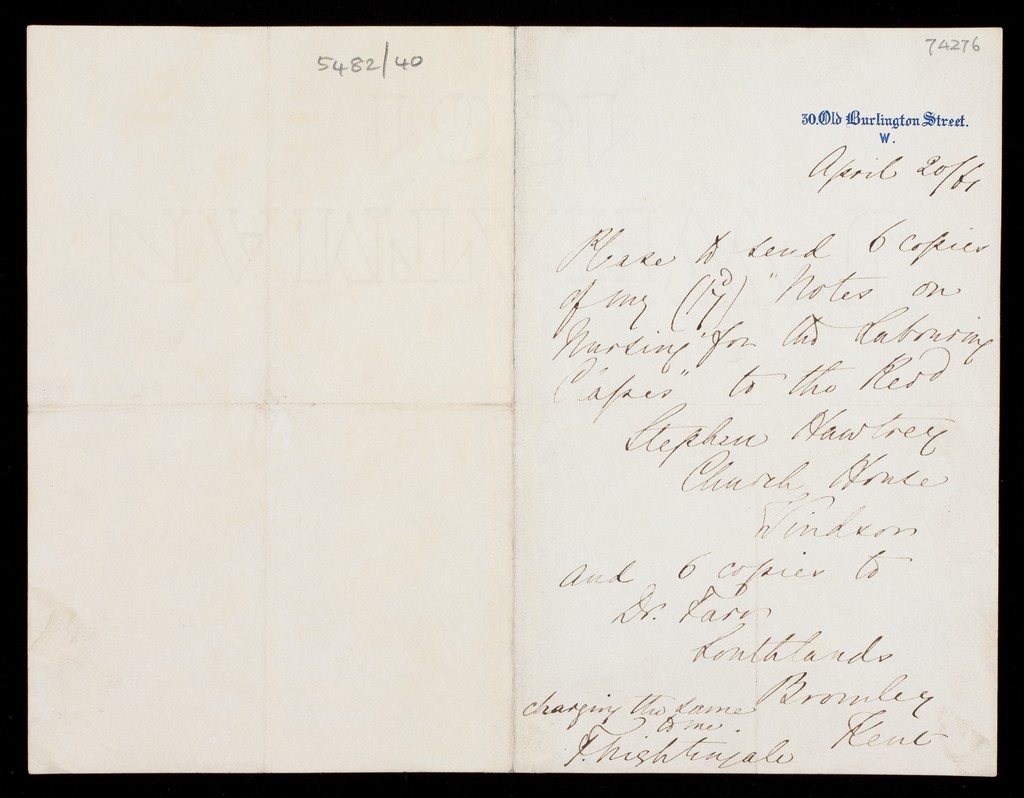 5482/40
74276
30. Old Burlington Street.
W.
April 20/61
Please to send 6 copies
of my (7d) "Notes on
Nursing" for the Labouring
Classes" to the Revd
Stephen Hawtrey
Church House
Windsor
and 6 copies to
Dr. Farr
Southlands
Bromley
Kent
charging the same
to me
F. Nightingale